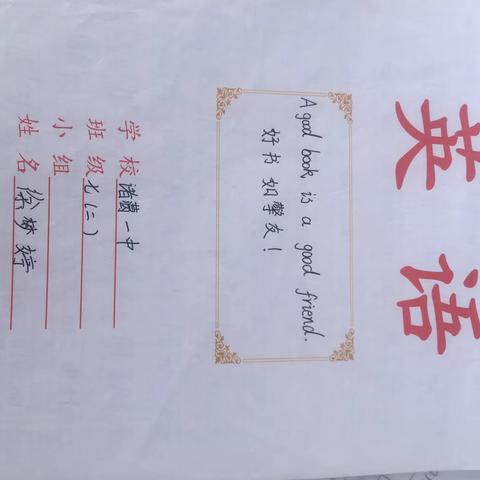 英语
A good book is a good friend.
好书如挚友！
学校 一中
班级 七(二)
小组
姓名 徐梦婷